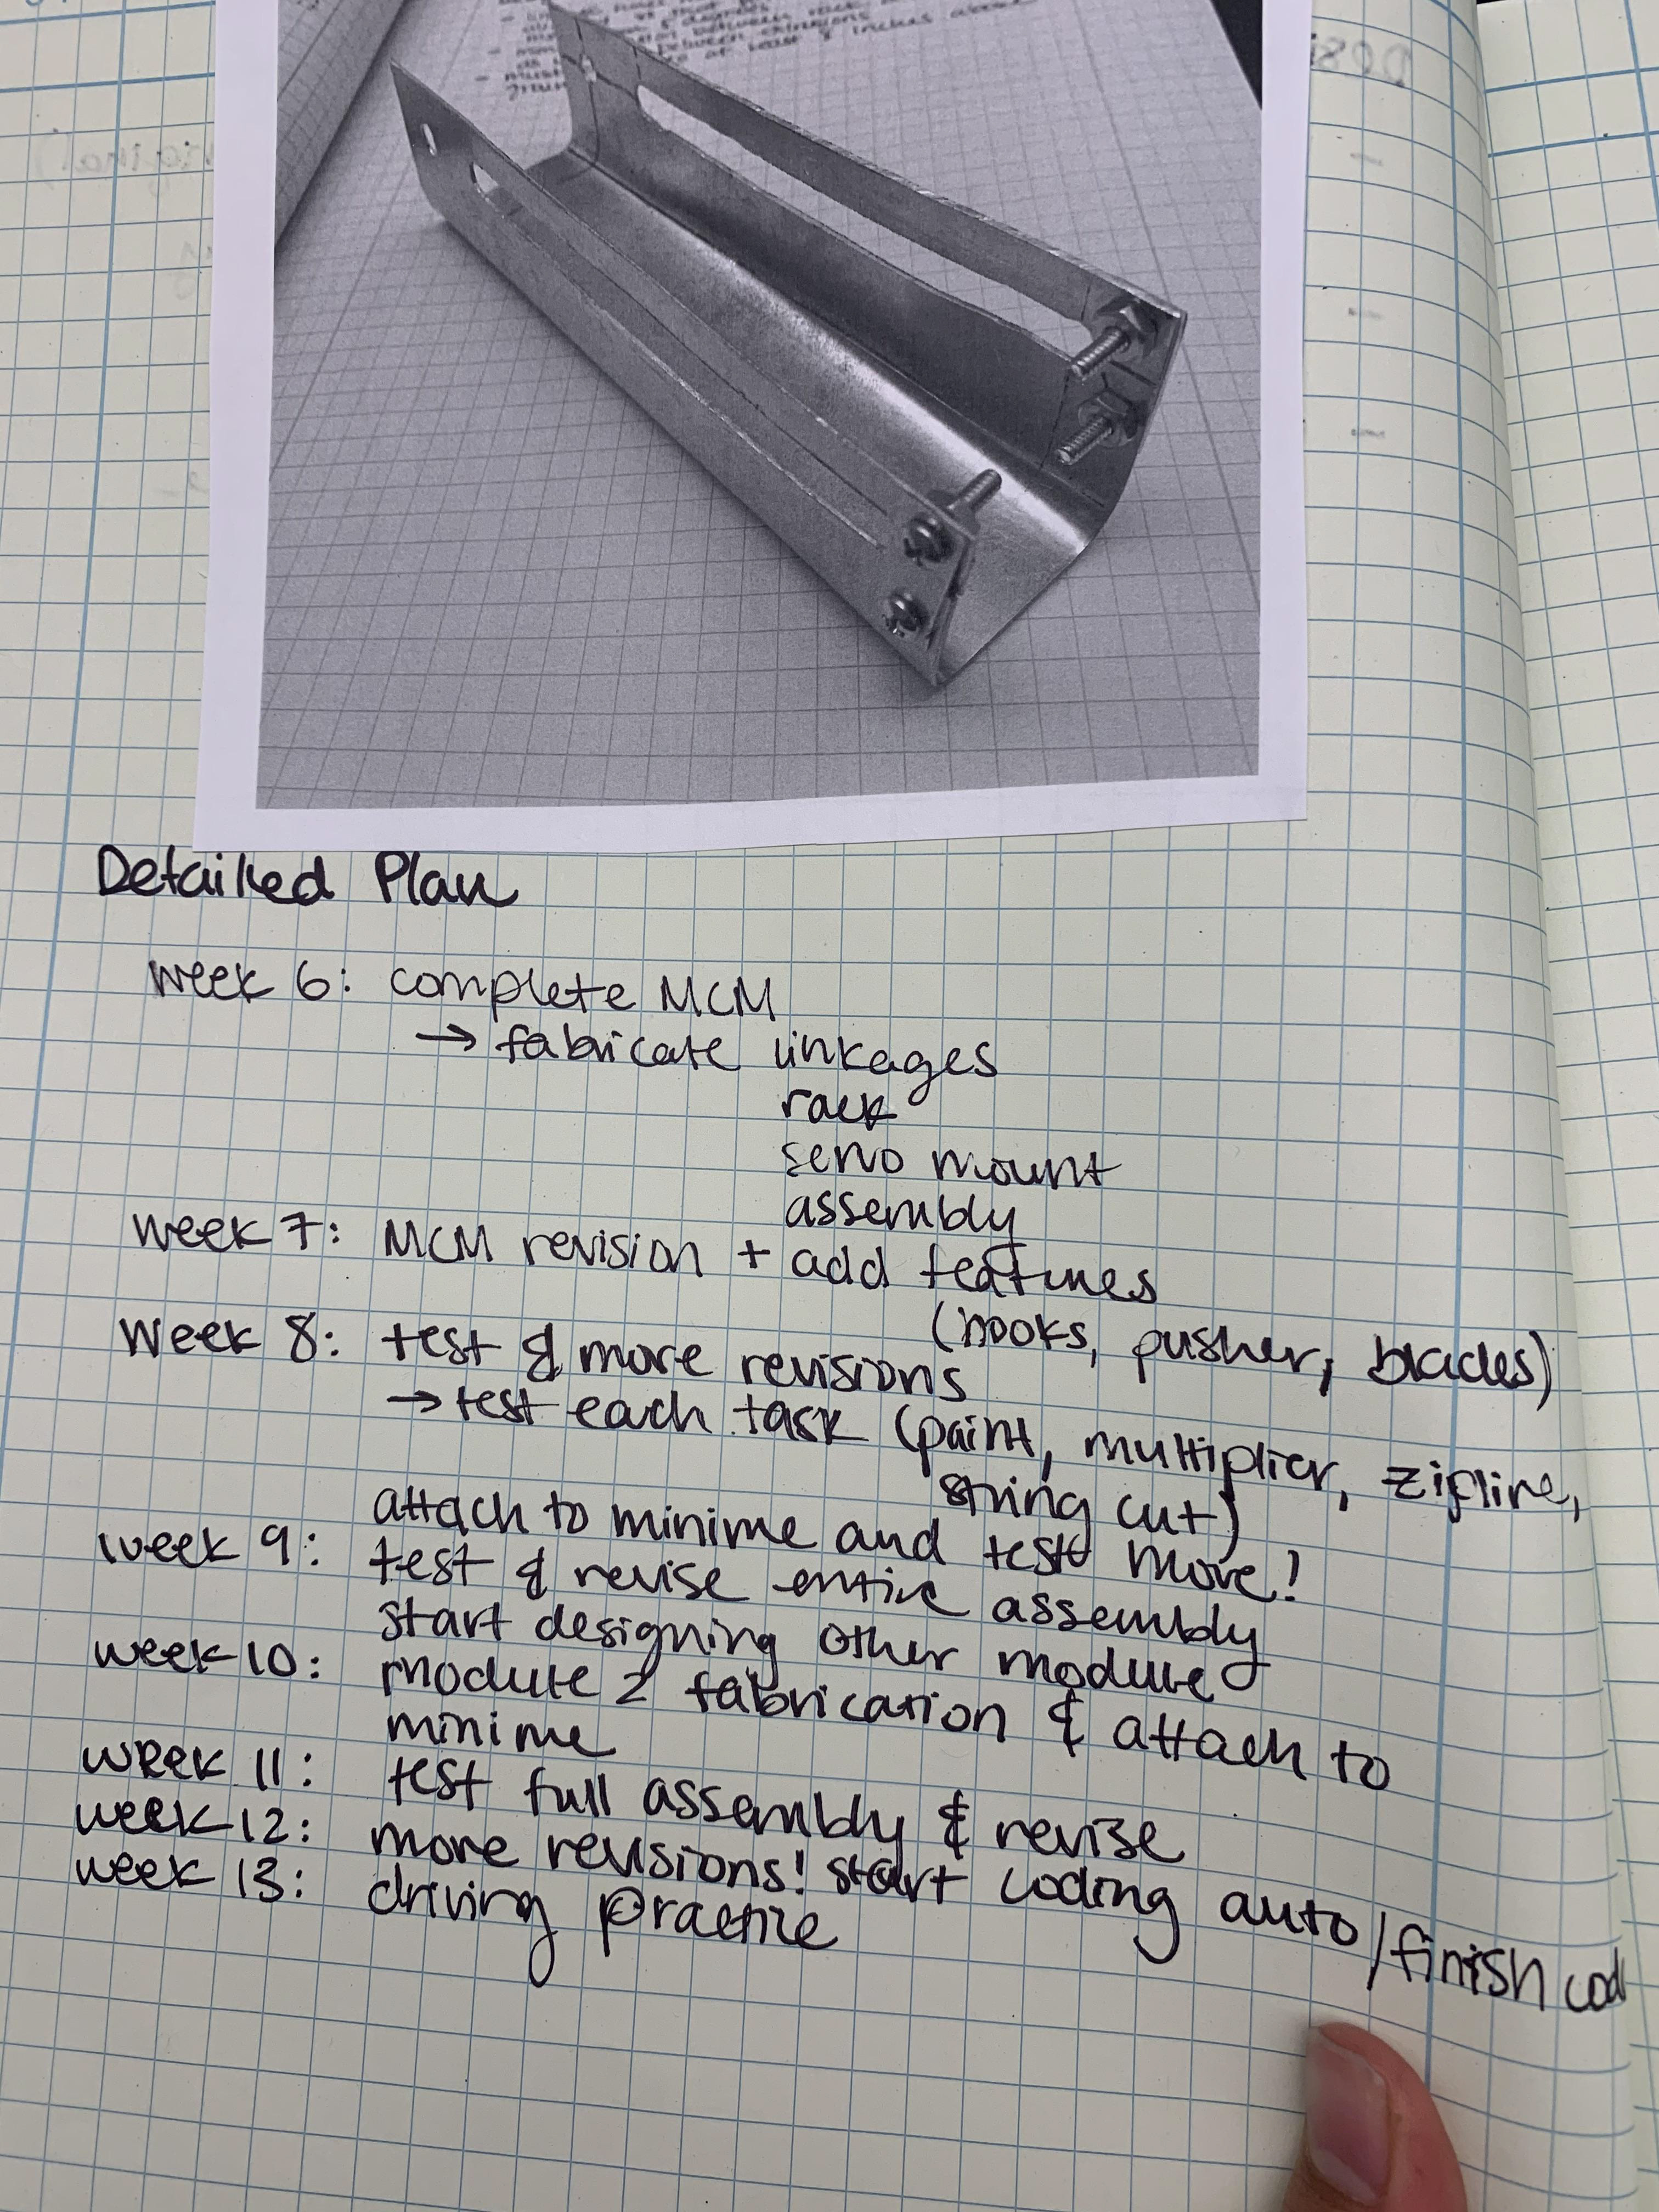 between extrusions
at least 8 inches
Detailed Plan
week 6: complete MCM
→ fabricate linkages
rack
servo mount
assembly
week 7: MCM revision + add features
(hooks, pusher, blades)
Week 8: test & more revisions
→ test each task (paint, multiplier, zipline,
string cut)
attach to minime and test more!
week 9: test & revise entire assembly
start designing other module
week 10: module 2 fabrication & attach to
minime
week 11: test full assembly & revise
week 12: more revisions! start coding auto/finish cod
week 13: driving practice